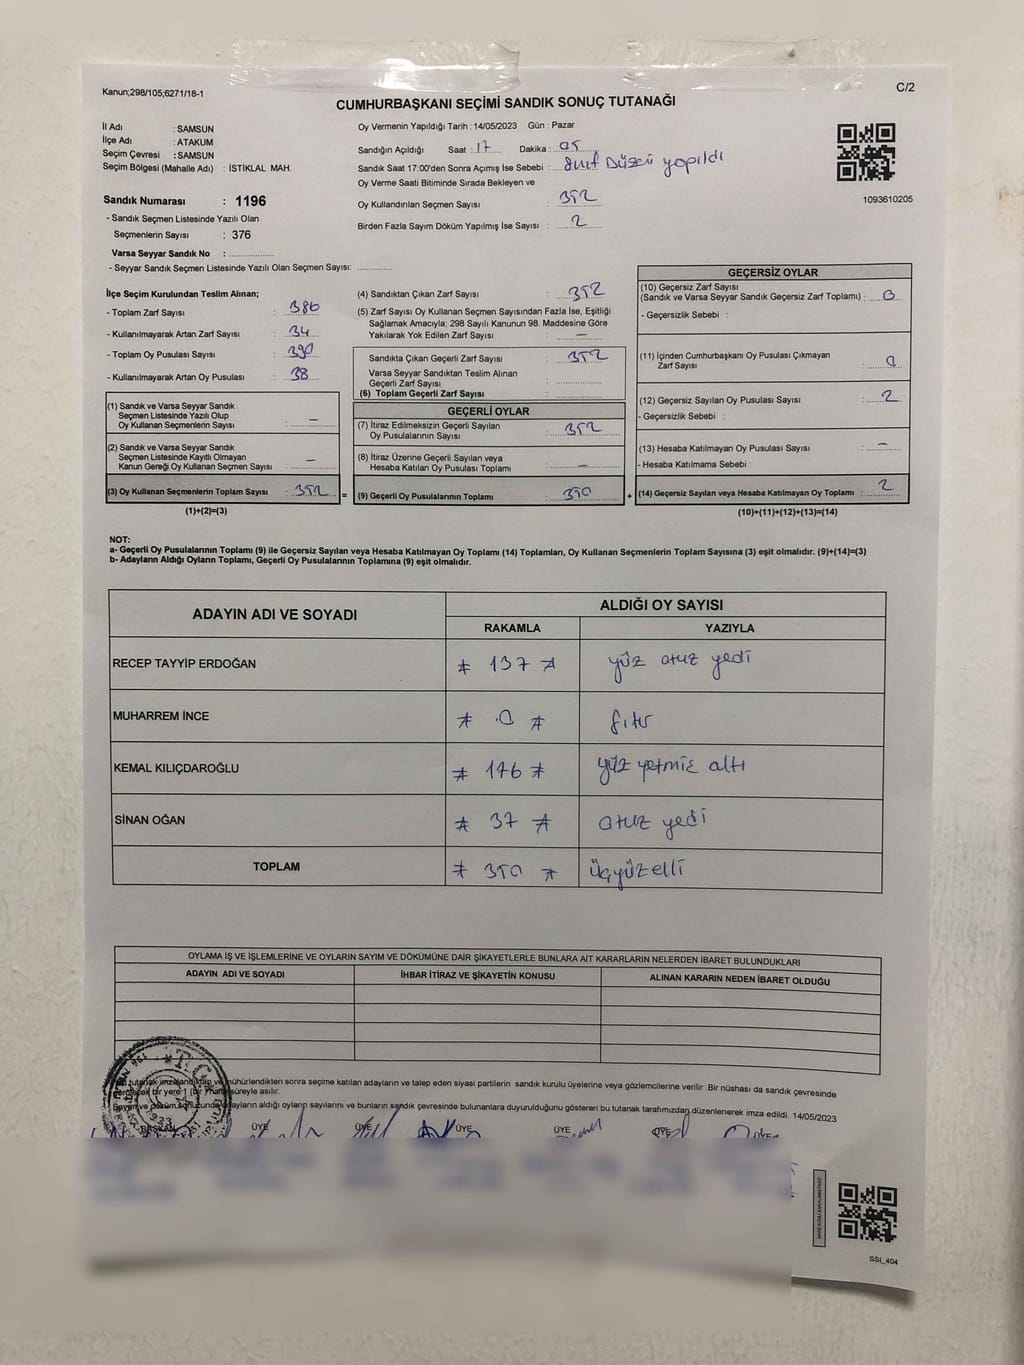 Kanun;298/105;6271/18-1
C/2
CUMHURBAŞKANI SEÇİMİ SANDIK SONUÇ TUTANAĞI
İl Adı : SAMSUN
İlçe Adı : ATAKUM
Seçim Çevresi : SAMSUN
Seçim Bölgesi (Mahalle Adı) : İSTİKLAL MAH.
Sandık Numarası : 1196
- Sandık Seçmen Listesinde Yazılı Olan
Seçmenlerin Sayısı : 376
Varsa Seyyar Sandık No :
- Seyyar Sandık Seçmen Listesinde Yazılı Olan Seçmen Sayısı:
Oy Vermenin Yapıldığı Tarih : 14/05/2023 Gün : Pazar
Sandığın Açıldığı Saat : 17 Dakika : 05
Sandık Saat 17:00'den Sonra Açımış İse Sebebi : Sınıf Düzeni yapıldı
Oy Verme Saati Bitiminde Sırada Bekleyen ve
Oy Kullandırılan Seçmen Sayısı : 352
Birden Fazla Sayım Döküm Yapılmış İse Sayısı : 2
1093610205
İlçe Seçim Kurulundan Teslim Alınan;
- Toplam Zarf Sayısı : 386
- Kullanılmayarak Artan Zarf Sayısı : 34
- Toplam Oy Pusulası Sayısı : 390
- Kullanılmayarak Artan Oy Pusulası : 38
(1) Sandık ve Varsa Seyyar Sandık
Seçmen Listesinde Yazılı Olup
Oy Kullanan Seçmenlerin Sayısı : —
(2) Sandık ve Varsa Seyyar Sandık
Seçmen Listesinde Kayıtlı Olmayan
Kanun Gereği Oy Kullanan Seçmen Sayısı : —
(3) Oy Kullanan Seçmenlerin Toplam Sayısı : 352 =
(1)+(2)=(3)
(4) Sandıktan Çıkan Zarf Sayısı : 352
(5) Zarf Sayısı Oy Kullanan Seçmen Sayısından Fazla İse, Eşitliği
Sağlamak Amacıyla; 298 Sayılı Kanunun 98. Maddesine Göre
Yakılarak Yok Edilen Zarf Sayısı : —
Sandıkta Çıkan Geçerli Zarf Sayısı : 352
Varsa Seyyar Sandıktan Teslim Alınan
Geçerli Zarf Sayısı :
(6) Toplam Geçerli Zarf Sayısı :
GEÇERLİ OYLAR
(7) İtiraz Edilmeksizin Geçerli Sayılan
Oy Pusulalarının Sayısı : 352
(8) İtiraz Üzerine Geçerli Sayılan veya
Hesaba Katılan Oy Pusulası Toplamı : —
(9) Geçerli Oy Pusulalarının Toplamı : 350 +
GEÇERSİZ OYLAR
(10) Geçersiz Zarf Sayısı
(Sandık ve Varsa Seyyar Sandık Geçersiz Zarf Toplamı) : 0
- Geçersizlik Sebebi :
(11) İçinden Cumhurbaşkanı Oy Pusulası Çıkmayan
Zarf Sayısı : 0
(12) Geçersiz Sayılan Oy Pusulası Sayısı : 2
- Geçersizlik Sebebi :
(13) Hesaba Katılmayan Oy Pusulası Sayısı : —
- Hesaba Katılmama Sebebi :
(14) Geçersiz Sayılan veya Hesaba Katılmayan Oy Toplamı : 2
(10)+(11)+(12)+(13)=(14)
NOT:
a- Geçerli Oy Pusulalarının Toplamı (9) ile Geçersiz Sayılan veya Hesaba Katılmayan Oy Toplamı (14) Toplamları, Oy Kullanan Seçmenlerin Toplam Sayısına (3) eşit olmalıdır. (9)+(14)=(3)
b- Adayların Aldığı Oyların Toplamı, Geçerli Oy Pusulalarının Toplamına (9) eşit olmalıdır.
ADAYIN ADI VE SOYADI ALDIĞI OY SAYISI
RAKAMLA YAZIYLA
RECEP TAYYİP ERDOĞAN ≠ 137 ≠ yüz otuz yedi
MUHARREM İNCE ≠ 0 ≠ sıfır
KEMAL KILIÇDAROĞLU ≠ 176 ≠ yüz yetmiş altı
SİNAN OĞAN ≠ 37 ≠ otuz yedi
TOPLAM ≠ 350 ≠ üçyüzelli
OYLAMA İŞ VE İŞLEMLERİNE VE OYLARIN SAYIM VE DÖKÜMÜNE DAİR ŞİKAYETLERLE BUNLARA AİT KARARLARIN NELERDEN İBARET BULUNDUKLARI
ADAYIN ADI VE SOYADI İHBAR İTİRAZ VE ŞİKAYETİN KONUSU ALINAN KARARIN NEDEN İBARET OLDUĞU
tutanak mühürlendikten sonra seçime katılan adayların ve talep eden siyasi partilerin sandık kurulu üyelerine veya gözlemcilerine verilir. Bir nüshası da sandık çevresinde
bir yere süreyle asılır.
Sayım ve döküm sonucunda adayların aldığı oyların sayılarını ve bunların sandık çevresinde bulunanlara duyurulduğunu gösteren bu tutanak tarafımızdan düzenlenerek imza edildi. 14/05/2023
BAŞKAN ÜYE ÜYE ÜYE ÜYE ÜYE ÜYE
SSİ_404